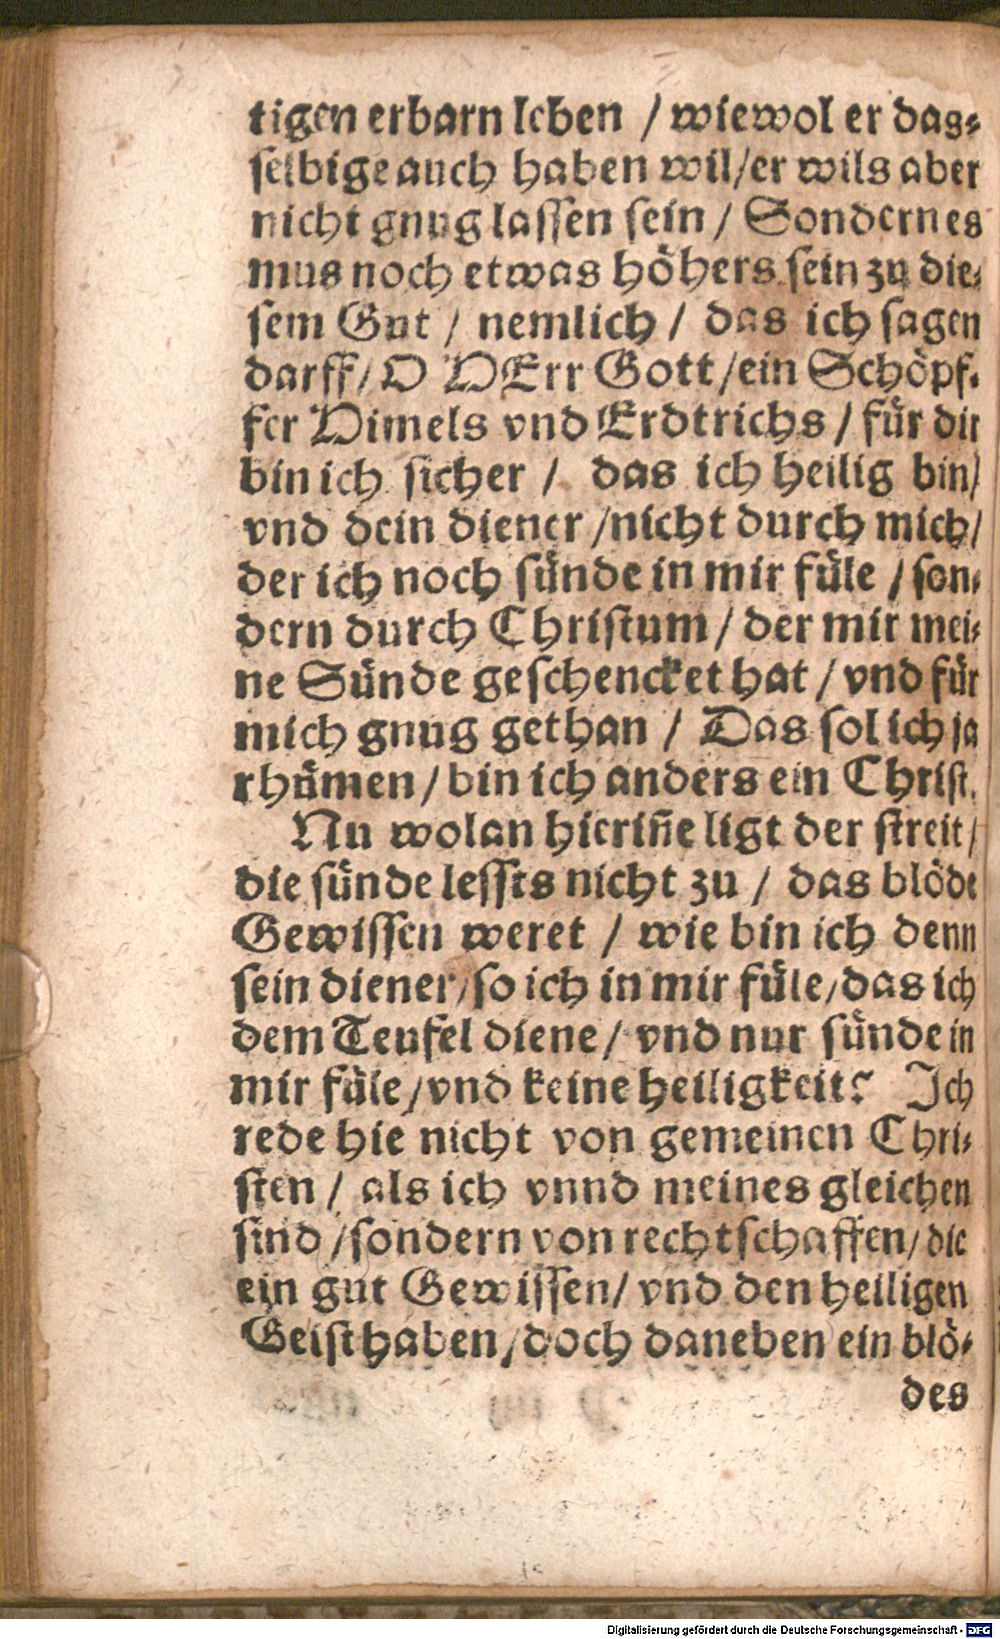 tigen erbarn leben / wiewol er das⸗
selbige auch haben wil / er wils aber
nicht gnug lassen sein / Sondern es
mus noch etwas höhers sein zu die⸗
sem Gut / nemlich / das ich sagen
darff / O HErr Gott / ein Schöpf⸗
fer Himels vnd Erdtrichs / für dir
bin ich sicher / das ich heilig bin /
vnd dein diener / nicht durch mich /
der ich noch sünde in mir füle / son⸗
dern durch Christum / der mir mei⸗
ne Sünde geschencket hat / vnd für
mich gnug gethan / Das sol ich ja
rhümen / bin ich anders ein Christ.
Nu wolan hierin̄e ligt der streit /
die sünde lessts nicht zu / das blöde
Gewissen weret / wie bin ich denn
sein diener / so ich in mir füle / das ich
dem Teufel diene / vnd nur sünde in
mir füle / vnd keine heiligkeit? Ich
rede hie nicht von gemeinen Chri⸗
sten / als ich vnnd meines gleichen
sind / sondern von rechtschaffen / die
ein gut Gewissen / vnd den heiligen
Geist haben / doch daneben ein blö⸗
des
Digitalisierung gefördert durch die Deutsche Forschungsgemeinschaft - DFG